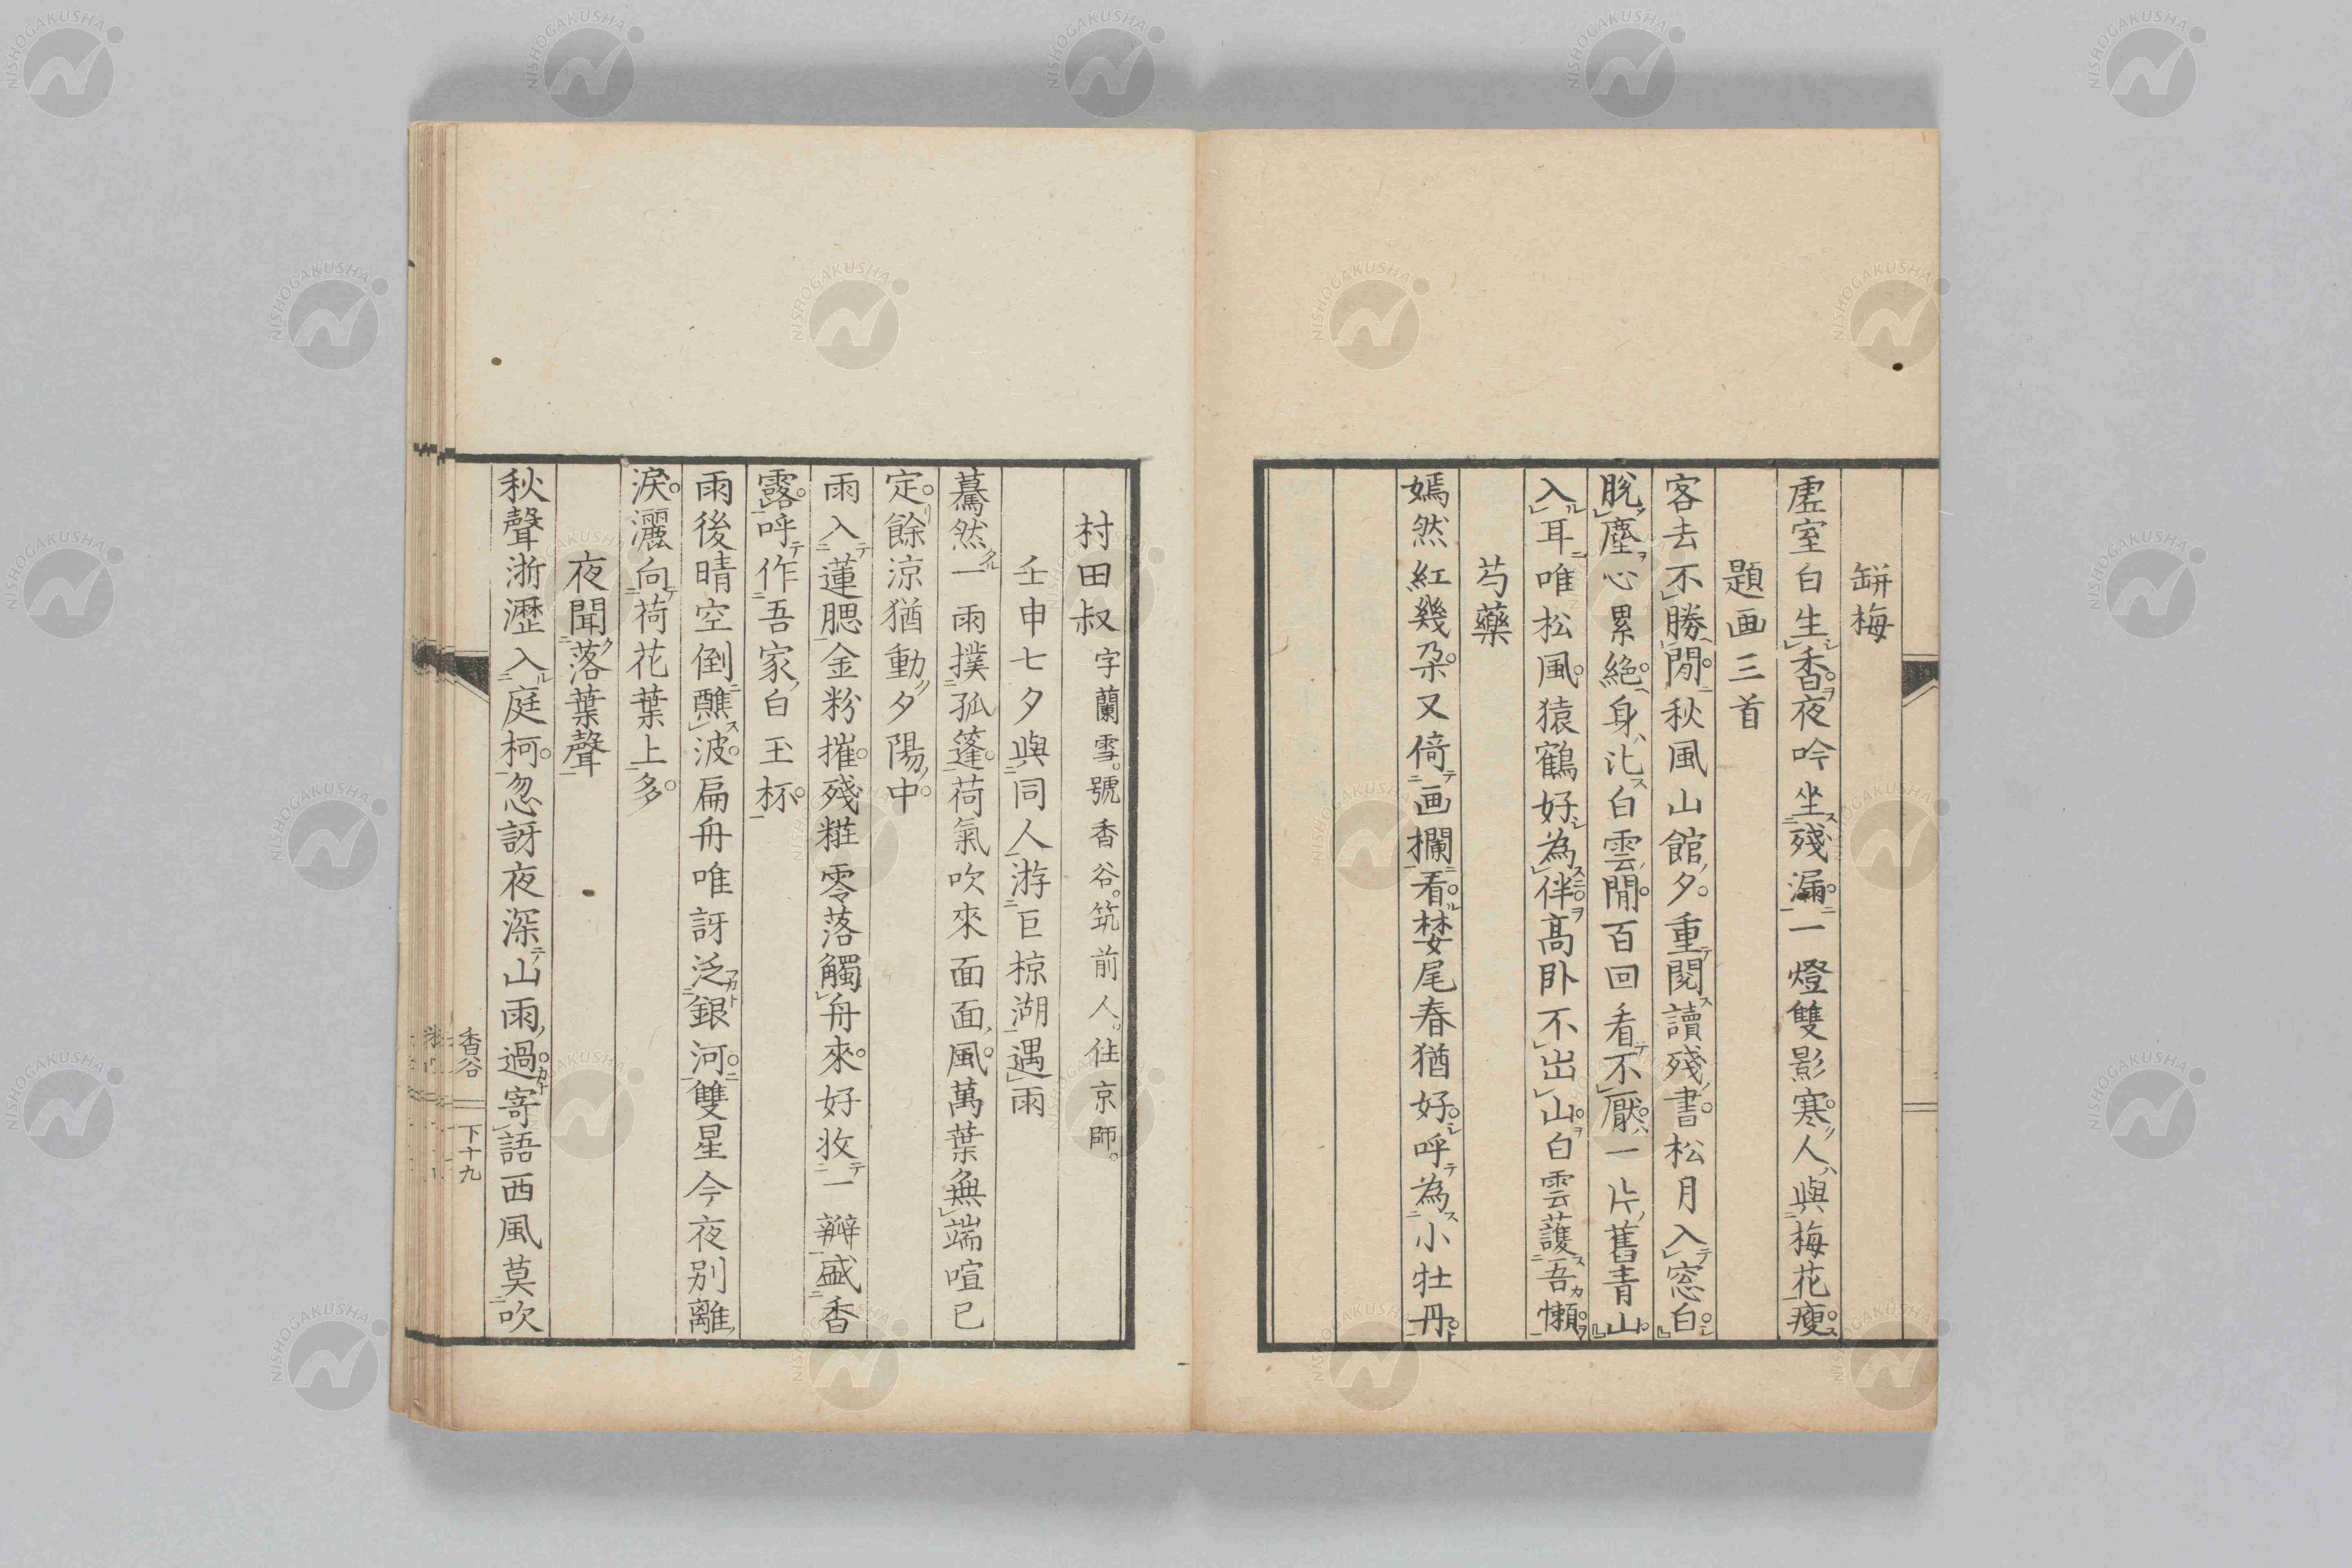 缾梅
虛室白生香夜吟坐殘漏一燈雙影寒人與梅花瘦
題画三首
客去不勝閒秋風山館夕重閱讀殘書松月入窓白
脫塵心累絕身化白雲閒百回看不厭一片舊青山
入耳唯松風猿鶴好為伴高卧不出山白雲護吾懶
芍藥
嫣然紅幾朶又倚画欄看婪尾春猶好呼為小牡丹
村田叔字蘭雪。號香谷。筑前人。住京師。
壬申七夕與同人游巨椋湖遇雨
驀然一雨撲孤篷荷氣吹來面面風萬葉無端喧已
定餘涼猶動夕陽中
雨入蓮腮金粉摧殘糚零落觸舟來好收一瓣盛香
露呼作吾家白玉杯
雨後晴空倒蘸波扁舟唯訝泛銀河雙星今夜別離
淚灑向荷花葉上多
夜聞落葉聲
秋聲淅瀝入庭柯忽訝夜深山雨過寄語西風莫吹
香谷
下十九
NISHOGAKUSHA